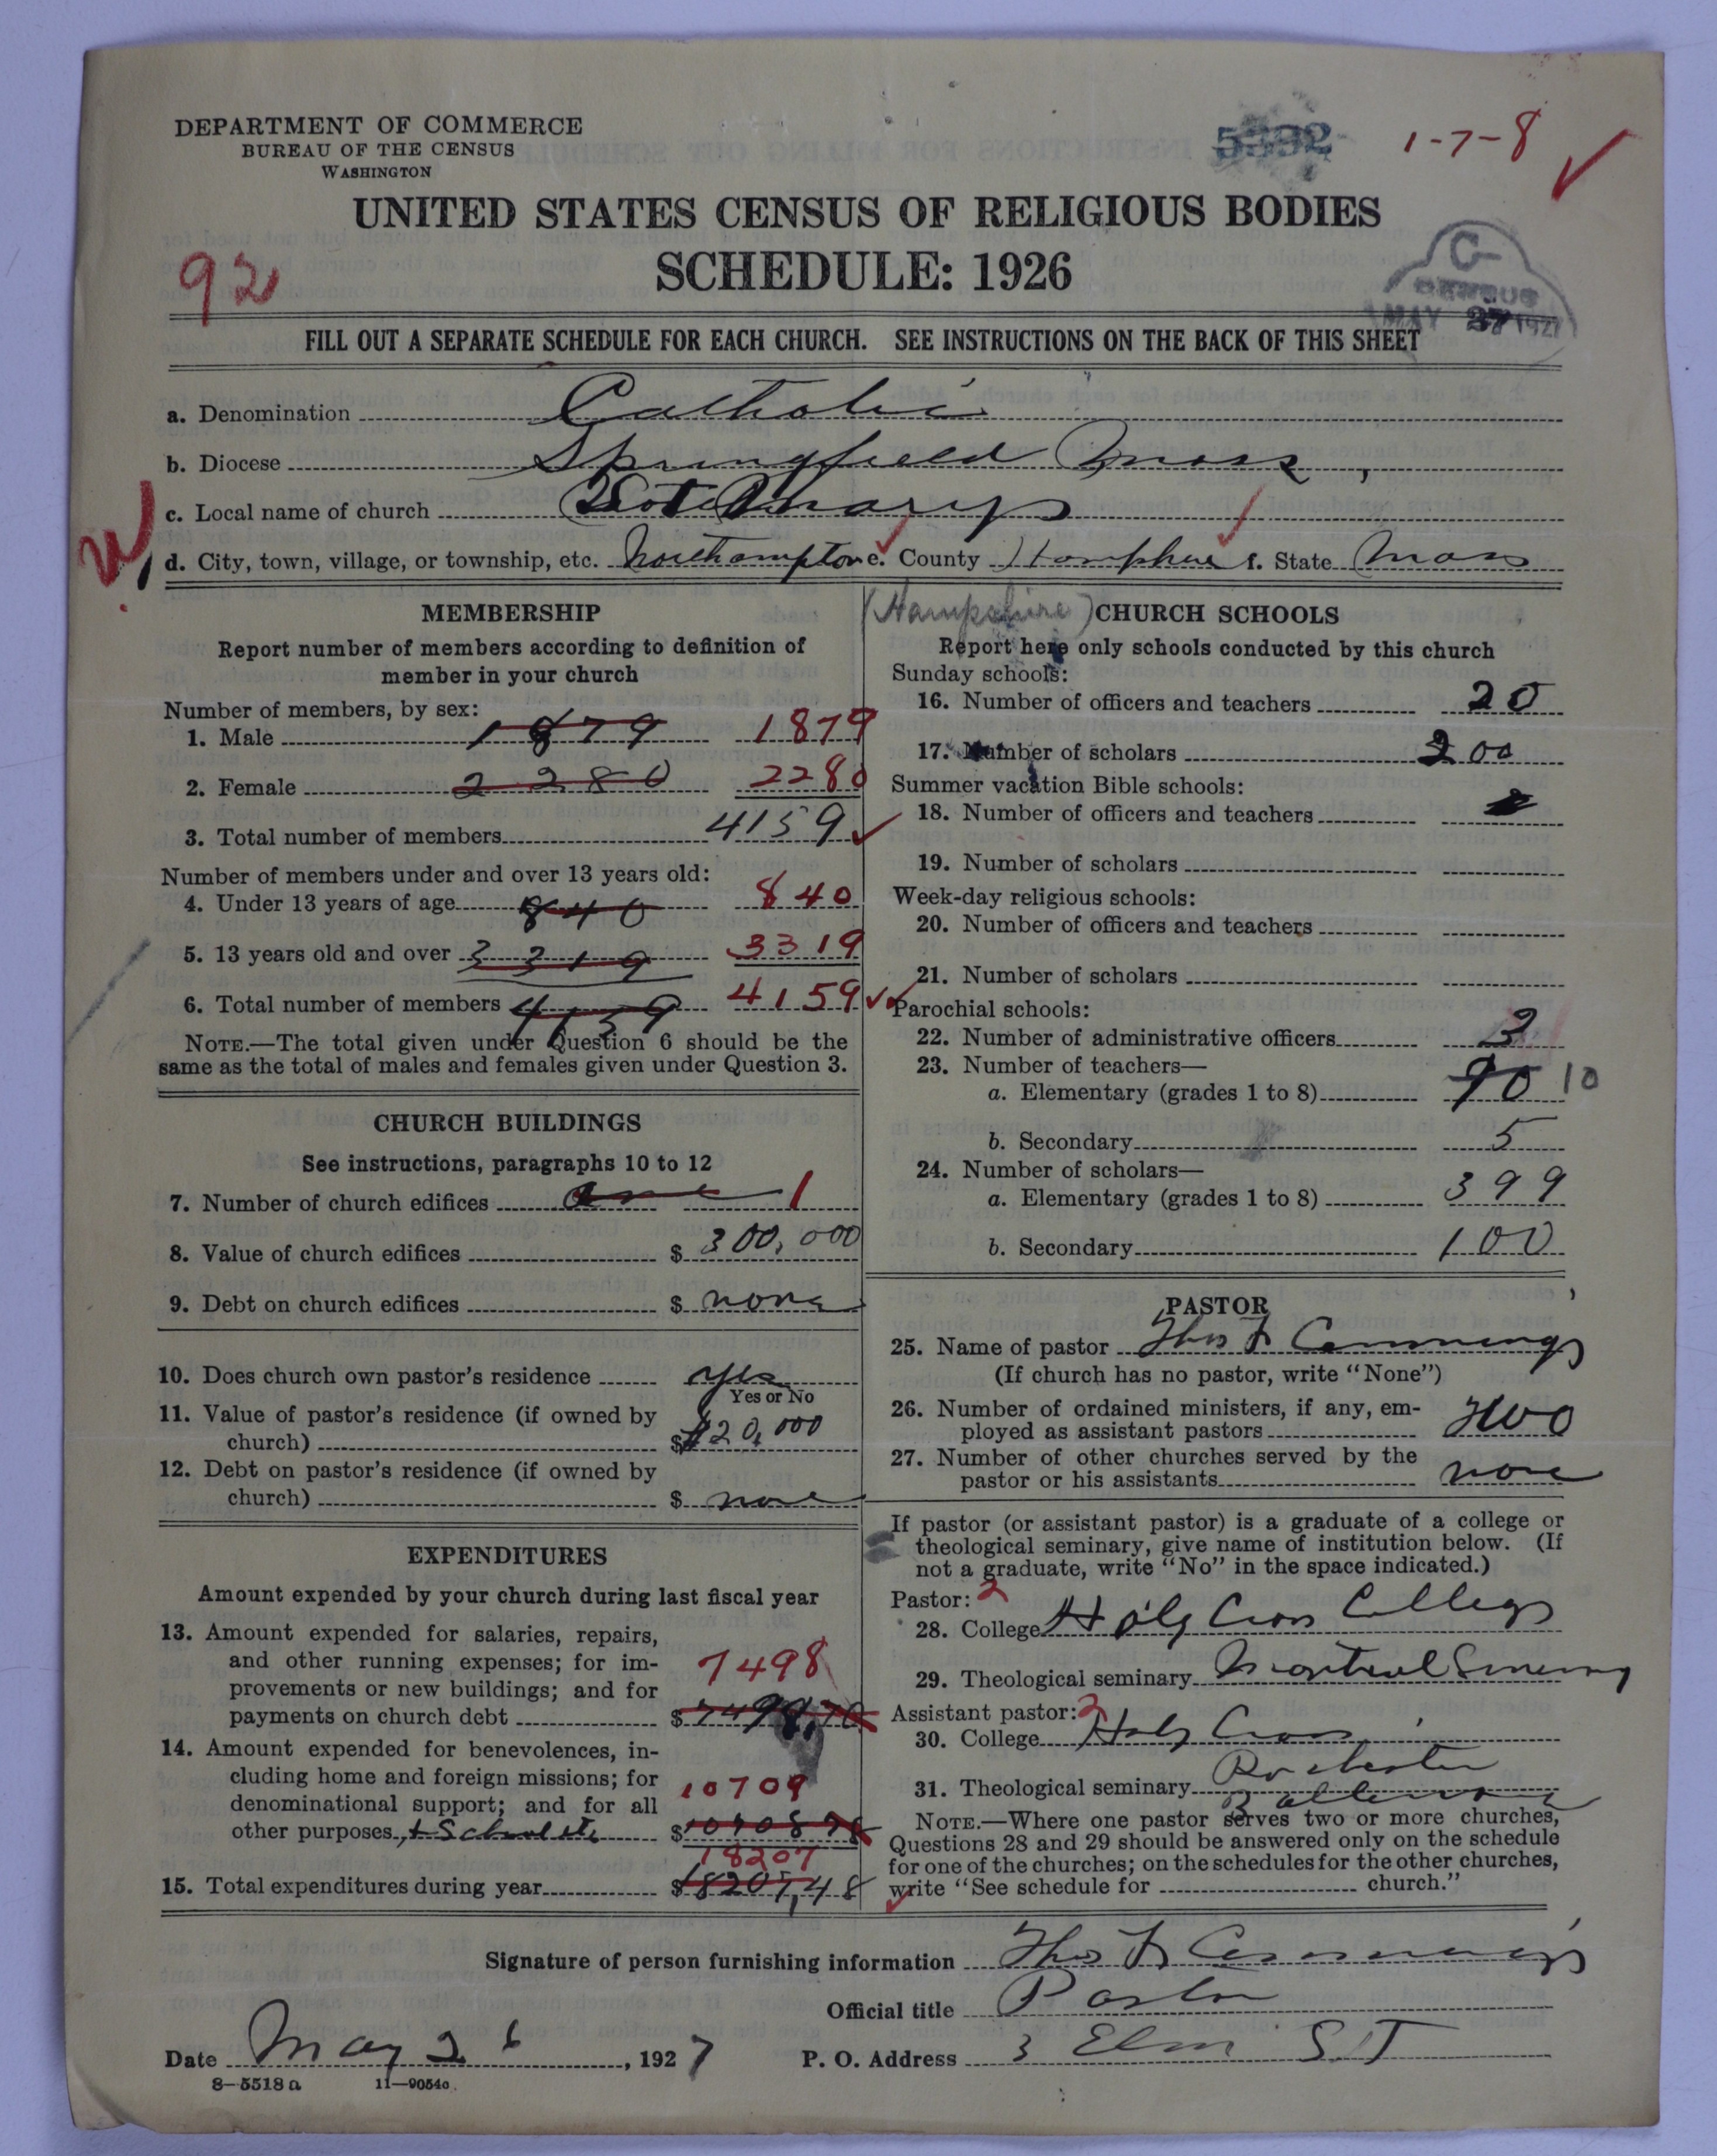 DEPARTMENT OF COMMERCE
BUREAU OF THE CENSUS
WASHINGTON
5392
1-7-8
UNITED STATES CENSUS OF RELIGIOUS BODIES
SCHEDULE: 1926
92
C-
CENSUS
MAY 27 1927
FILL OUT A SEPARATE SCHEDULE FOR EACH CHURCH. SEE INSTRUCTIONS ON THE BACK OF THIS SHEET
a. Denomination Catholic
b. Diocese Springfield Mass,
c. Local name of church Marys
d. City, town, village, or township, etc. Northampton e. County Hampshire f. State Mass
(Hampshire)
MEMBERSHIP
Report number of members according to definition of
member in your church
Number of members, by sex:
1. Male 1879 1879
2. Female 2280 2280
3. Total number of members 4159
Number of members under and over 13 years old:
4. Under 13 years of age 840 840
5. 13 years old and over 3319 3319
6. Total number of members 4159 4159
NOTE.—The total given under Question 6 should be the
same as the total of males and females given under Question 3.
CHURCH BUILDINGS
See instructions, paragraphs 10 to 12
7. Number of church edifices one 1
8. Value of church edifices $ 300,000
9. Debt on church edifices $ none
10. Does church own pastor's residence yes
Yes or No
11. Value of pastor's residence (if owned by
church) $ $20,000
12. Debt on pastor's residence (if owned by
church) $ none
EXPENDITURES
Amount expended by your church during last fiscal year
13. Amount expended for salaries, repairs,
and other running expenses; for im-
provements or new buildings; and for
payments on church debt $ 7498
14. Amount expended for benevolences, in-
cluding home and foreign missions; for
denominational support; and for all
other purposes, $ 10709
18207
15. Total expenditures during year $ 18207,48
CHURCH SCHOOLS
Report here only schools conducted by this church
Sunday schools:
16. Number of officers and teachers 20
17. Number of scholars 200
Summer vacation Bible schools:
18. Number of officers and teachers
19. Number of scholars
Week-day religious schools:
20. Number of officers and teachers
21. Number of scholars
Parochial schools:
22. Number of administrative officers
23. Number of teachers—
a. Elementary (grades 1 to 8) 10
b. Secondary 5
24. Number of scholars—
a. Elementary (grades 1 to 8) 399
b. Secondary 100
PASTOR
25. Name of pastor Thos F Cummings
(If church has no pastor, write "None")
26. Number of ordained ministers, if any, em-
ployed as assistant pastors two
27. Number of other churches served by the
pastor or his assistants none
If pastor (or assistant pastor) is a graduate of a college or
theological seminary, give name of institution below. (If
not a graduate, write "No" in the space indicated.)
Pastor: 2
28. College Holy Cross College
29. Theological seminary Montreal Seminary
Assistant pastor: 2
30. College Holy Cross
31. Theological seminary Rochester
NOTE.—Where one pastor serves two or more churches,
Questions 28 and 29 should be answered only on the schedule
for one of the churches; on the schedules for the other churches,
write "See schedule for church."
Signature of person furnishing information Thos F Cummings
Official title Pastor
Date May 26, 1927 P. O. Address 3 Elm ST
8-5518a 11-9054a